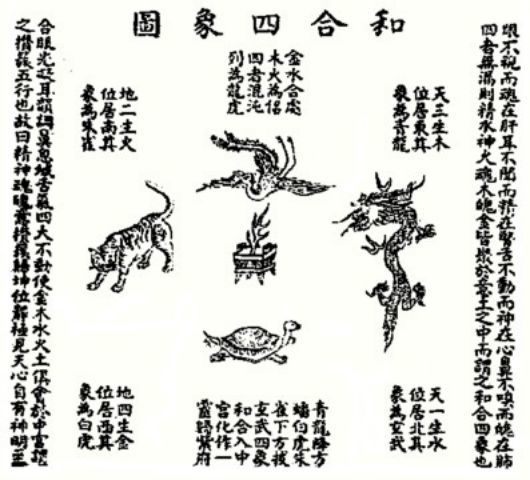 和合四象圖
眼不視而魂在肝耳不聞而精在腎舌不動而神在心鼻不嗅而魄在肺
四者無漏則精水神火魂木魄金皆聚於意土之中而謂之和合四象也
天三生木
位居東其
象為青龍
金水合處
木火為侶
四者混沌
列為龍虎
地二生火
位居南其
象為朱雀
天一生水
位居北其
象為玄武
青龍隆方
蟠白虎朱
雀下方披
玄武四象
和合入中
宮化作一
靈歸紫府
地四生金
位居西其
象為白虎
合眼光凝耳韻調鼻息緘舌氣四大不動使金木水火土俱會於中宮謂
之攢簇五行也故曰精神魂魄意攢簇歸坤位靜極見天心自有神明至